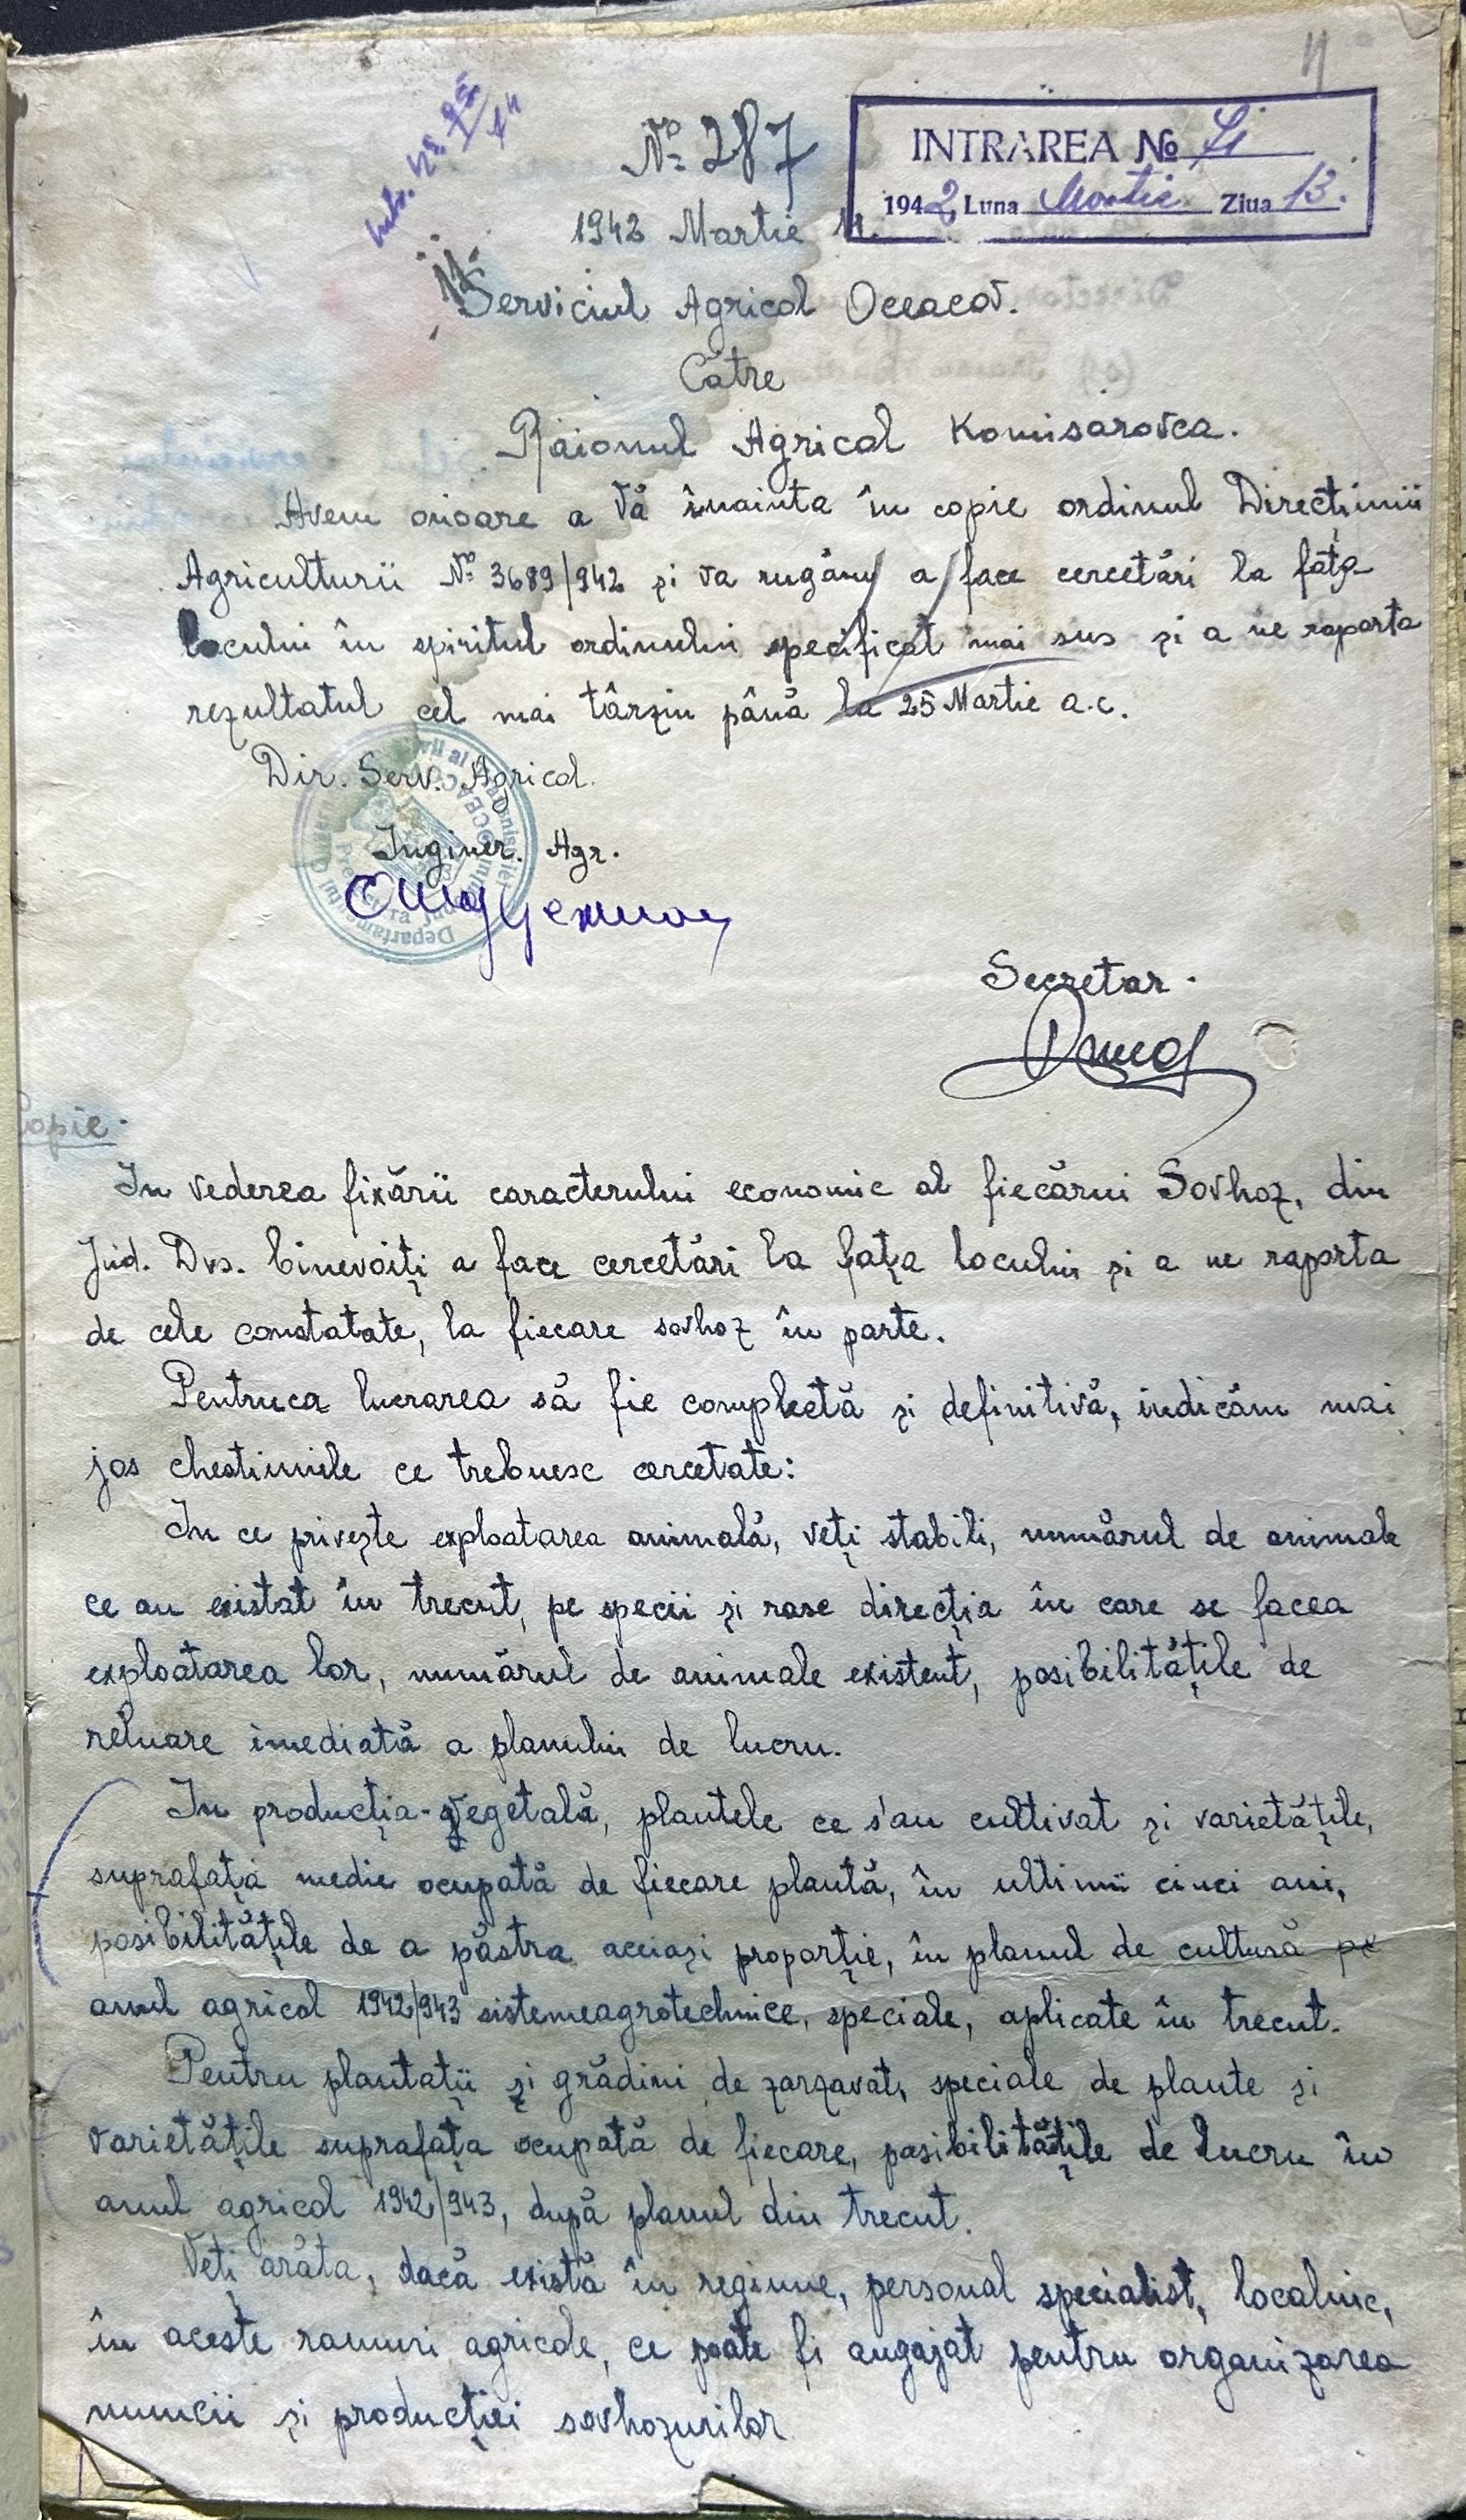 Nº 287
INTRAREA № 
1942 Luna Martie Ziua 13.
1942 Martie 11.
Serviciul Agricol Oceacov.
Către
Raionul Agricol Komisarovca.
Avem onoare a Vă înainta în copie ordinul Direcțiunii
Agriculturii Nº 3689/942 și va rugăm a face cercetări la fața
locului în spiritul ordinului specificat mai sus și a ne raporta
rezultatul cel mai târziu până la 25 Martie a.c.
Dir. Serv. Agricol.
Inginer. Agr.
Secretar.
Copie.
In vederea fixării caracterului economic al fiecărui Sovhoz, din
Jud. Dvs. binevoiți a face cercetări la fața locului și a ne raporta
de cele constatate, la fiecare sovhoz în parte.
Pentruca lucrarea să fie complectă și definitivă, indicăm mai
jos chestiunile ce trebuesc cercetate:
In ce privește exploatarea animală, veți stabili, numărul de animale
ce au existat în trecut, pe specii și rase direcția în care se facea
exploatarea lor, numărul de animale existent, posibilitățile de
reluare imediată a planului de lucru.
In producția-vegetală, plantele ce s'au cultivat și varietățile,
suprafața medie ocupată de fiecare plantă, în ultimii cinci ani,
posibilitățile de a păstra aceiași proporție, în planul de cultură pe
anul agricol 1942/943 sistemeagrotechnice, speciale, aplicate în trecut.
Pentru plantații și grădini de zarzavat, speciale de plante și
varietățile suprafața ocupată de fiecare, posibilitățile de lucru în
anul agricol 1942/943, după planul din trecut.
Veți arăta, dacă există în regiune, personal specialist, localnic,
în aceste ramuri agricole, ce poate fi angajat pentru organizarea
muncii și producției sovhozurilor